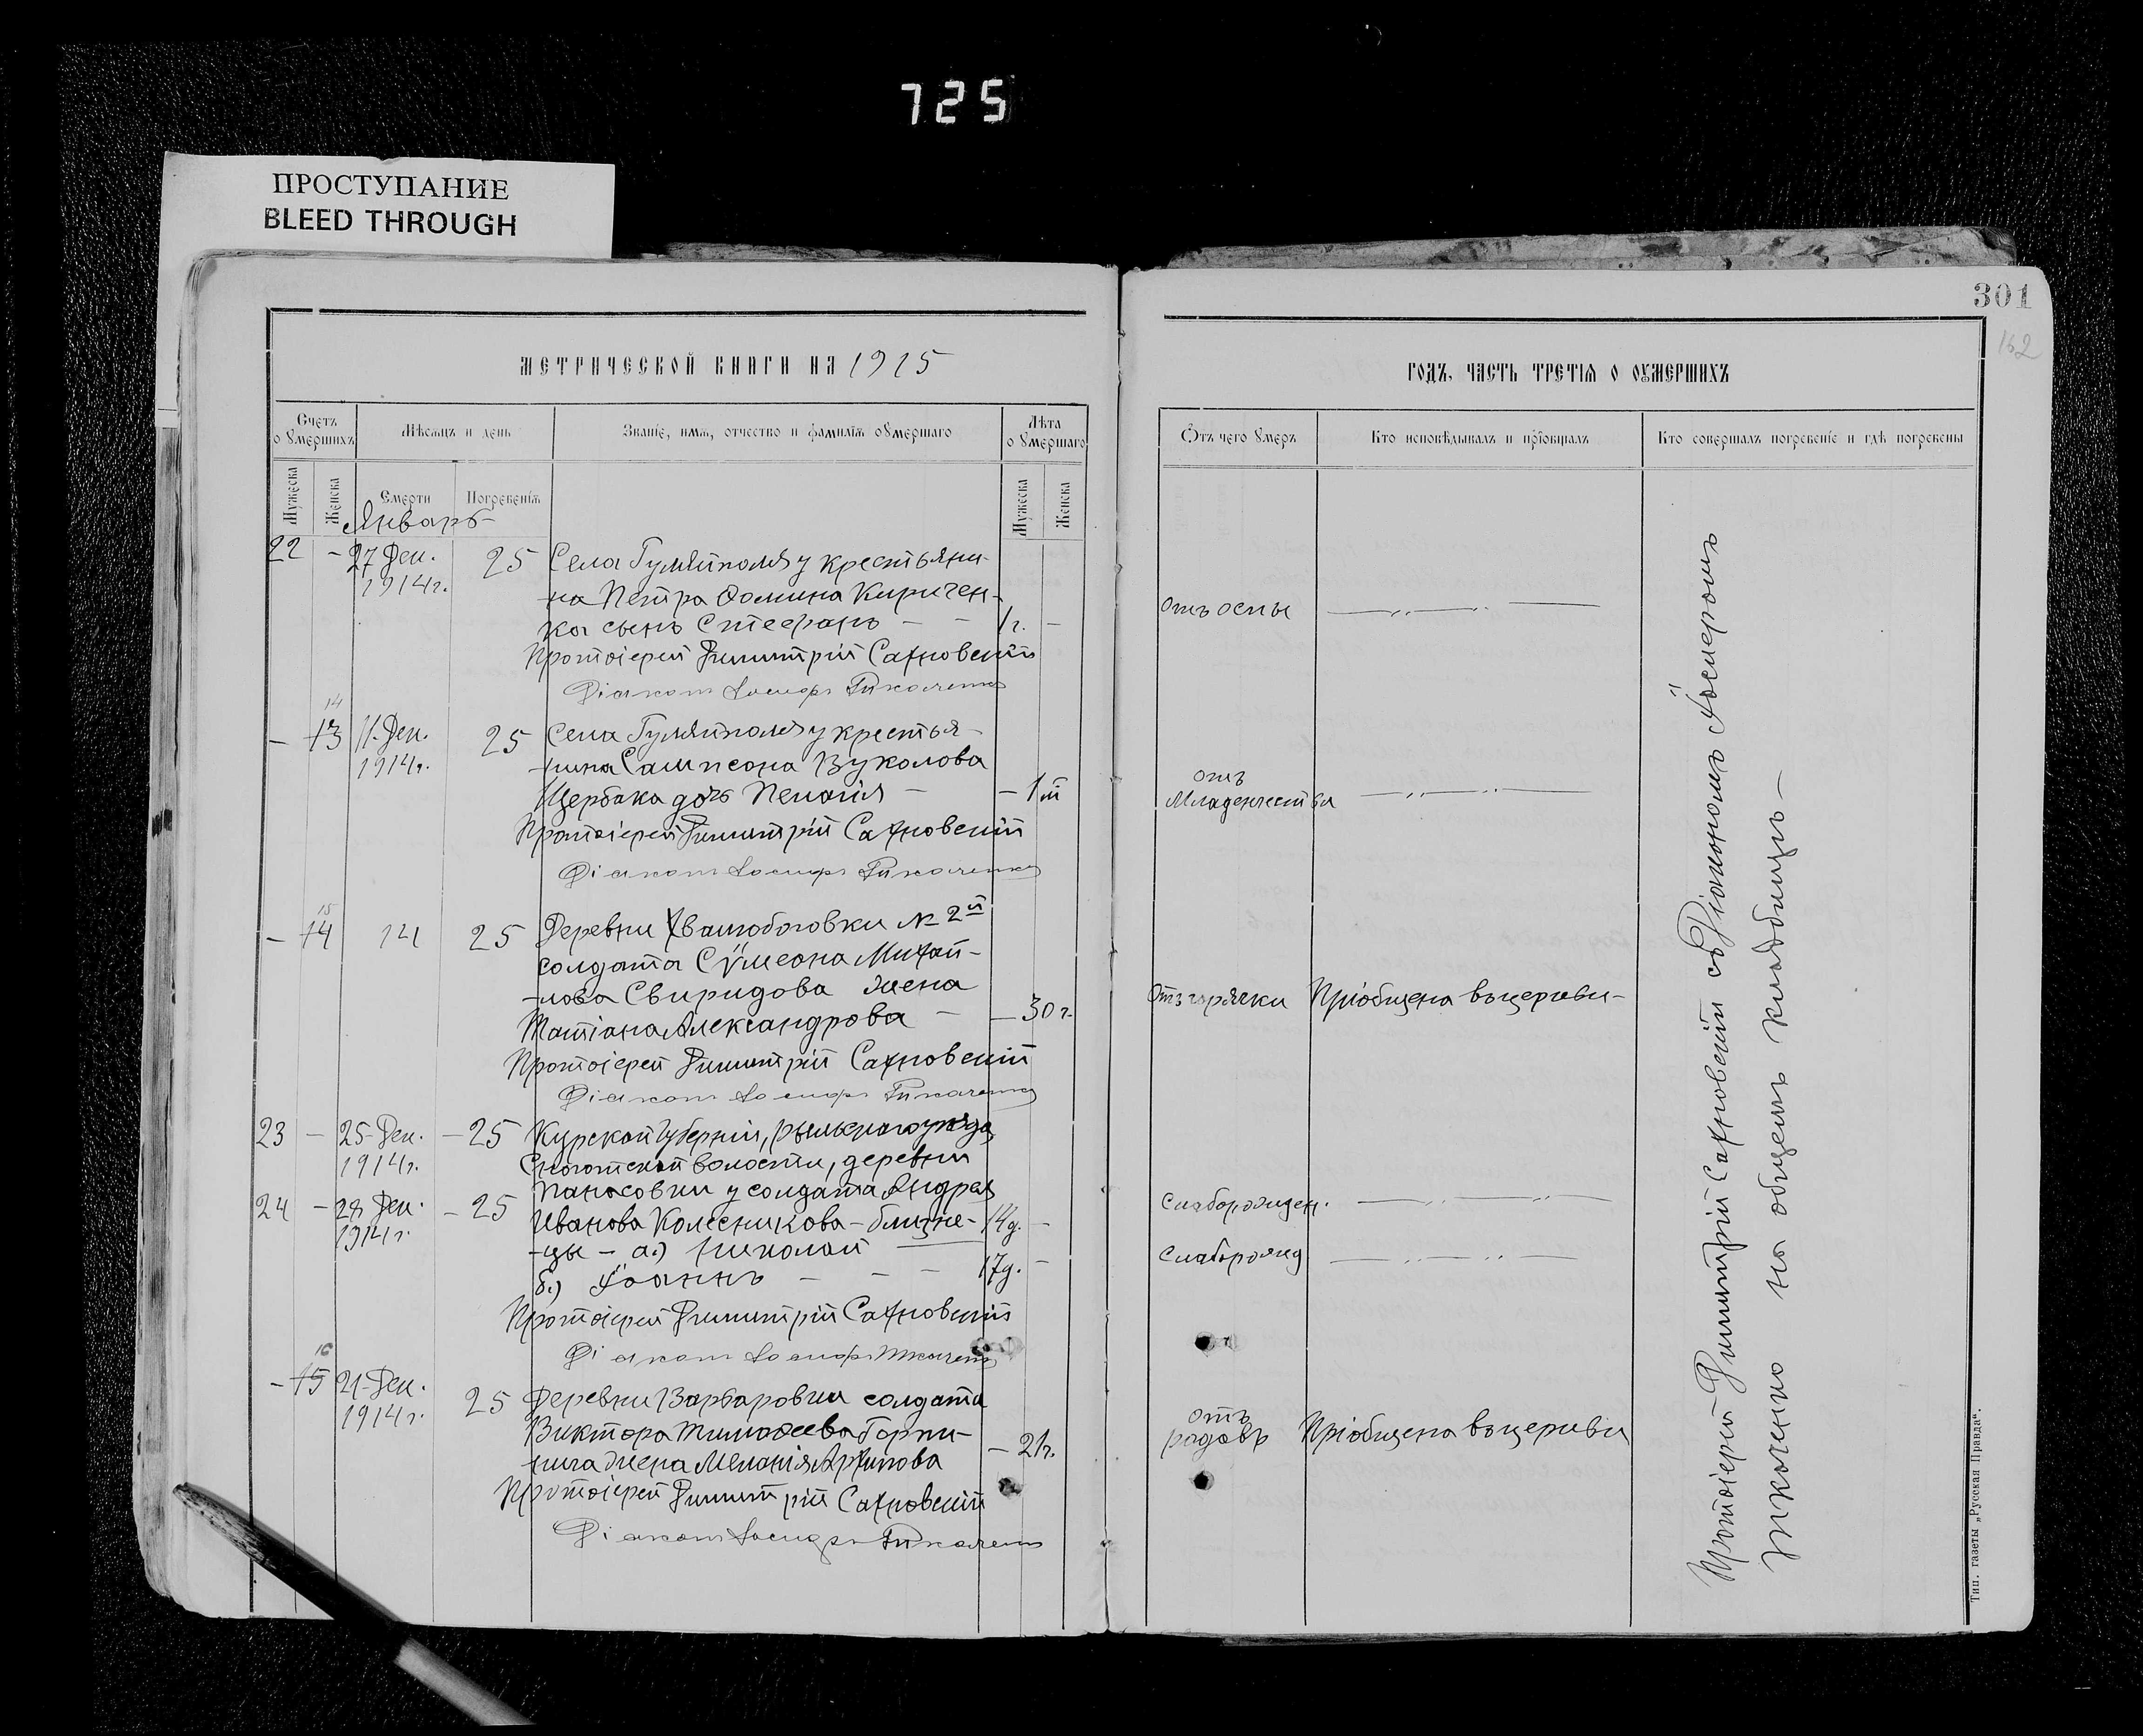 725
ПРОСТУПАНИЕ
BLEED THROUGH
301
162
МЕТРИЧЕСКОЙ КНИГИ НА 1915
ГОДЪ, ЧАСТЬ ТРЕТІЯ О ОУМЕРШИХЪ
Счетъ о умершихъ
Мѣсяцъ и день
Званіе, имя, отчество и фамилія оумершаго
Лѣта о умершаго
Отъ чего умеръ
Кто исповѣдывалъ и пріобщалъ
Кто совершалъ погребеніе и гдѣ погребены
Мужеска
Женска
Смерти
Погребенія
Мужеска
Женска
Январь
22 – 27 Дек. 25 Села Гуляйполя у крестьяни-
1914 г. на Петра Фомина Киричен-
ка сынъ Стефанъ – – 1 г. –
отъ оспы
Протоіерей Димитрій Сахновскій
Діаконъ Іосифъ Ткаченко
14
– 13 11 Дек. 25 Села Гуляйполя у крестья-
1914 г. нина Сампсона Вуколова
Щербака дочь Пелагія – – 1 м
отъ
младенчества
Протоіерей Димитрій Сахновскій
Діаконъ Іосифъ Ткаченко
15
– 14 14 25 Деревни № 2й
солдата Сѵмеона Михай-
лова Свиридова жена
Татіана Александрова – – 30 г.
Отъ горячки Пріобщена въ церкви –
Протоіерей Димитрій Сахновскій
Діаконъ Іосифъ Ткаченко
23 – 25 Дек. – 25 Курской губерніи, Рыльскаго уѣзда,
1914 г. волости, деревни
у солдата Андрея
24 – 28 Дек. – 25 Иванова Колесникова – близне- 14 д. –
1914 г. цы – а.) Николай
б.) Іоаннъ – – – 17 д. –
Слаборожден.
Слаборожд
Протоіерей Димитрій Сахновскій
Діаконъ Іосифъ Ткаченко
16
– 15 21 Дек. 25 Деревни Варваровки солдата
1914 г. Виктора Тимофеева Горпи-
нича жена Меланія Архипова – 21 г.
отъ
родовъ Пріобщена въ церкви
Протоіерей Димитрій Сахновскій
Діаконъ Іосифъ Ткаченко
Протоіерей Димитрій Сахновскій съ Діакономъ Іосифомъ
Ткаченко на общемъ кладбищѣ –
Тип. газеты „Русская Правда“.